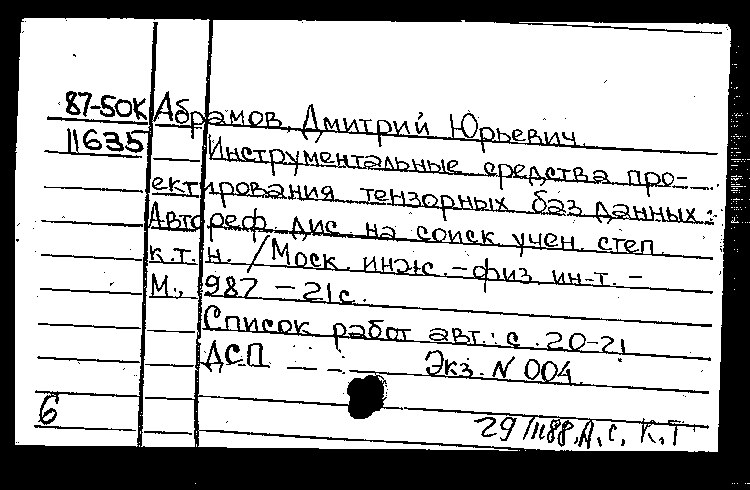 87-50К Абрамов, Дмитрий Юрьевич.
11635 Инструментальные средства про-
ектирования тензорных баз данных:
Автореф. дис. на соиск. учен. степ.
к.т.н. /Моск. инж.-физ. ин-т. -
М., 1987 - 21с.
Список работ авт.: с. 20-21
ДСП Экз. N 004.
6
29/II88. А.С. К.Т